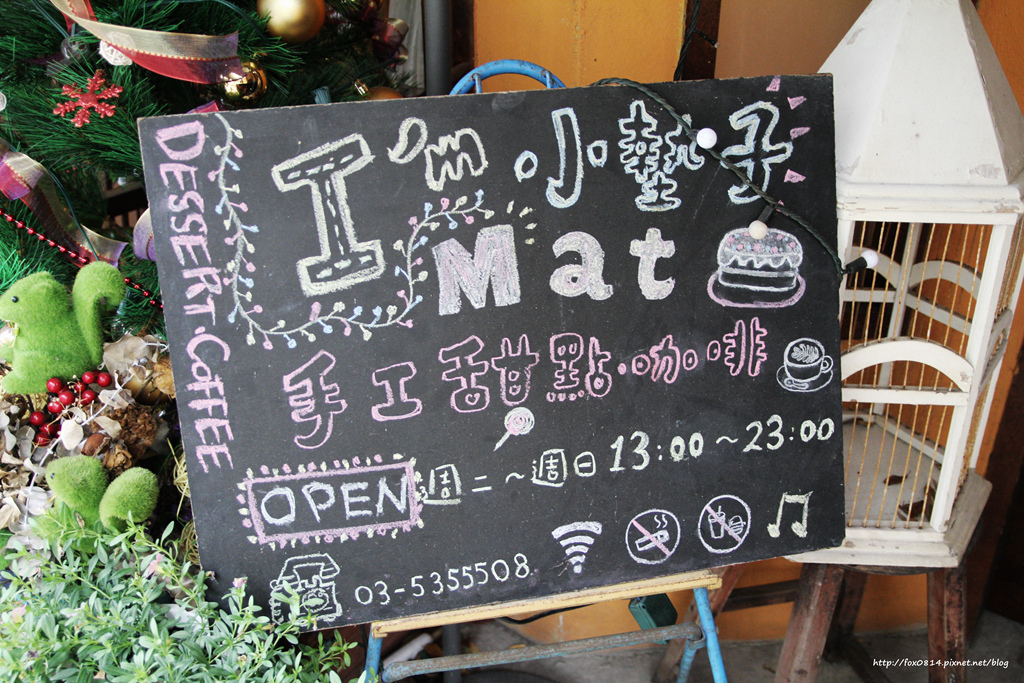 DESSERT·COFFEE
I'm 小墊子
Mat
手工甜點·咖啡
OPEN 週二~週日 13:00~23:00
03-5355508
http://fox0814.pixnet.net/blog